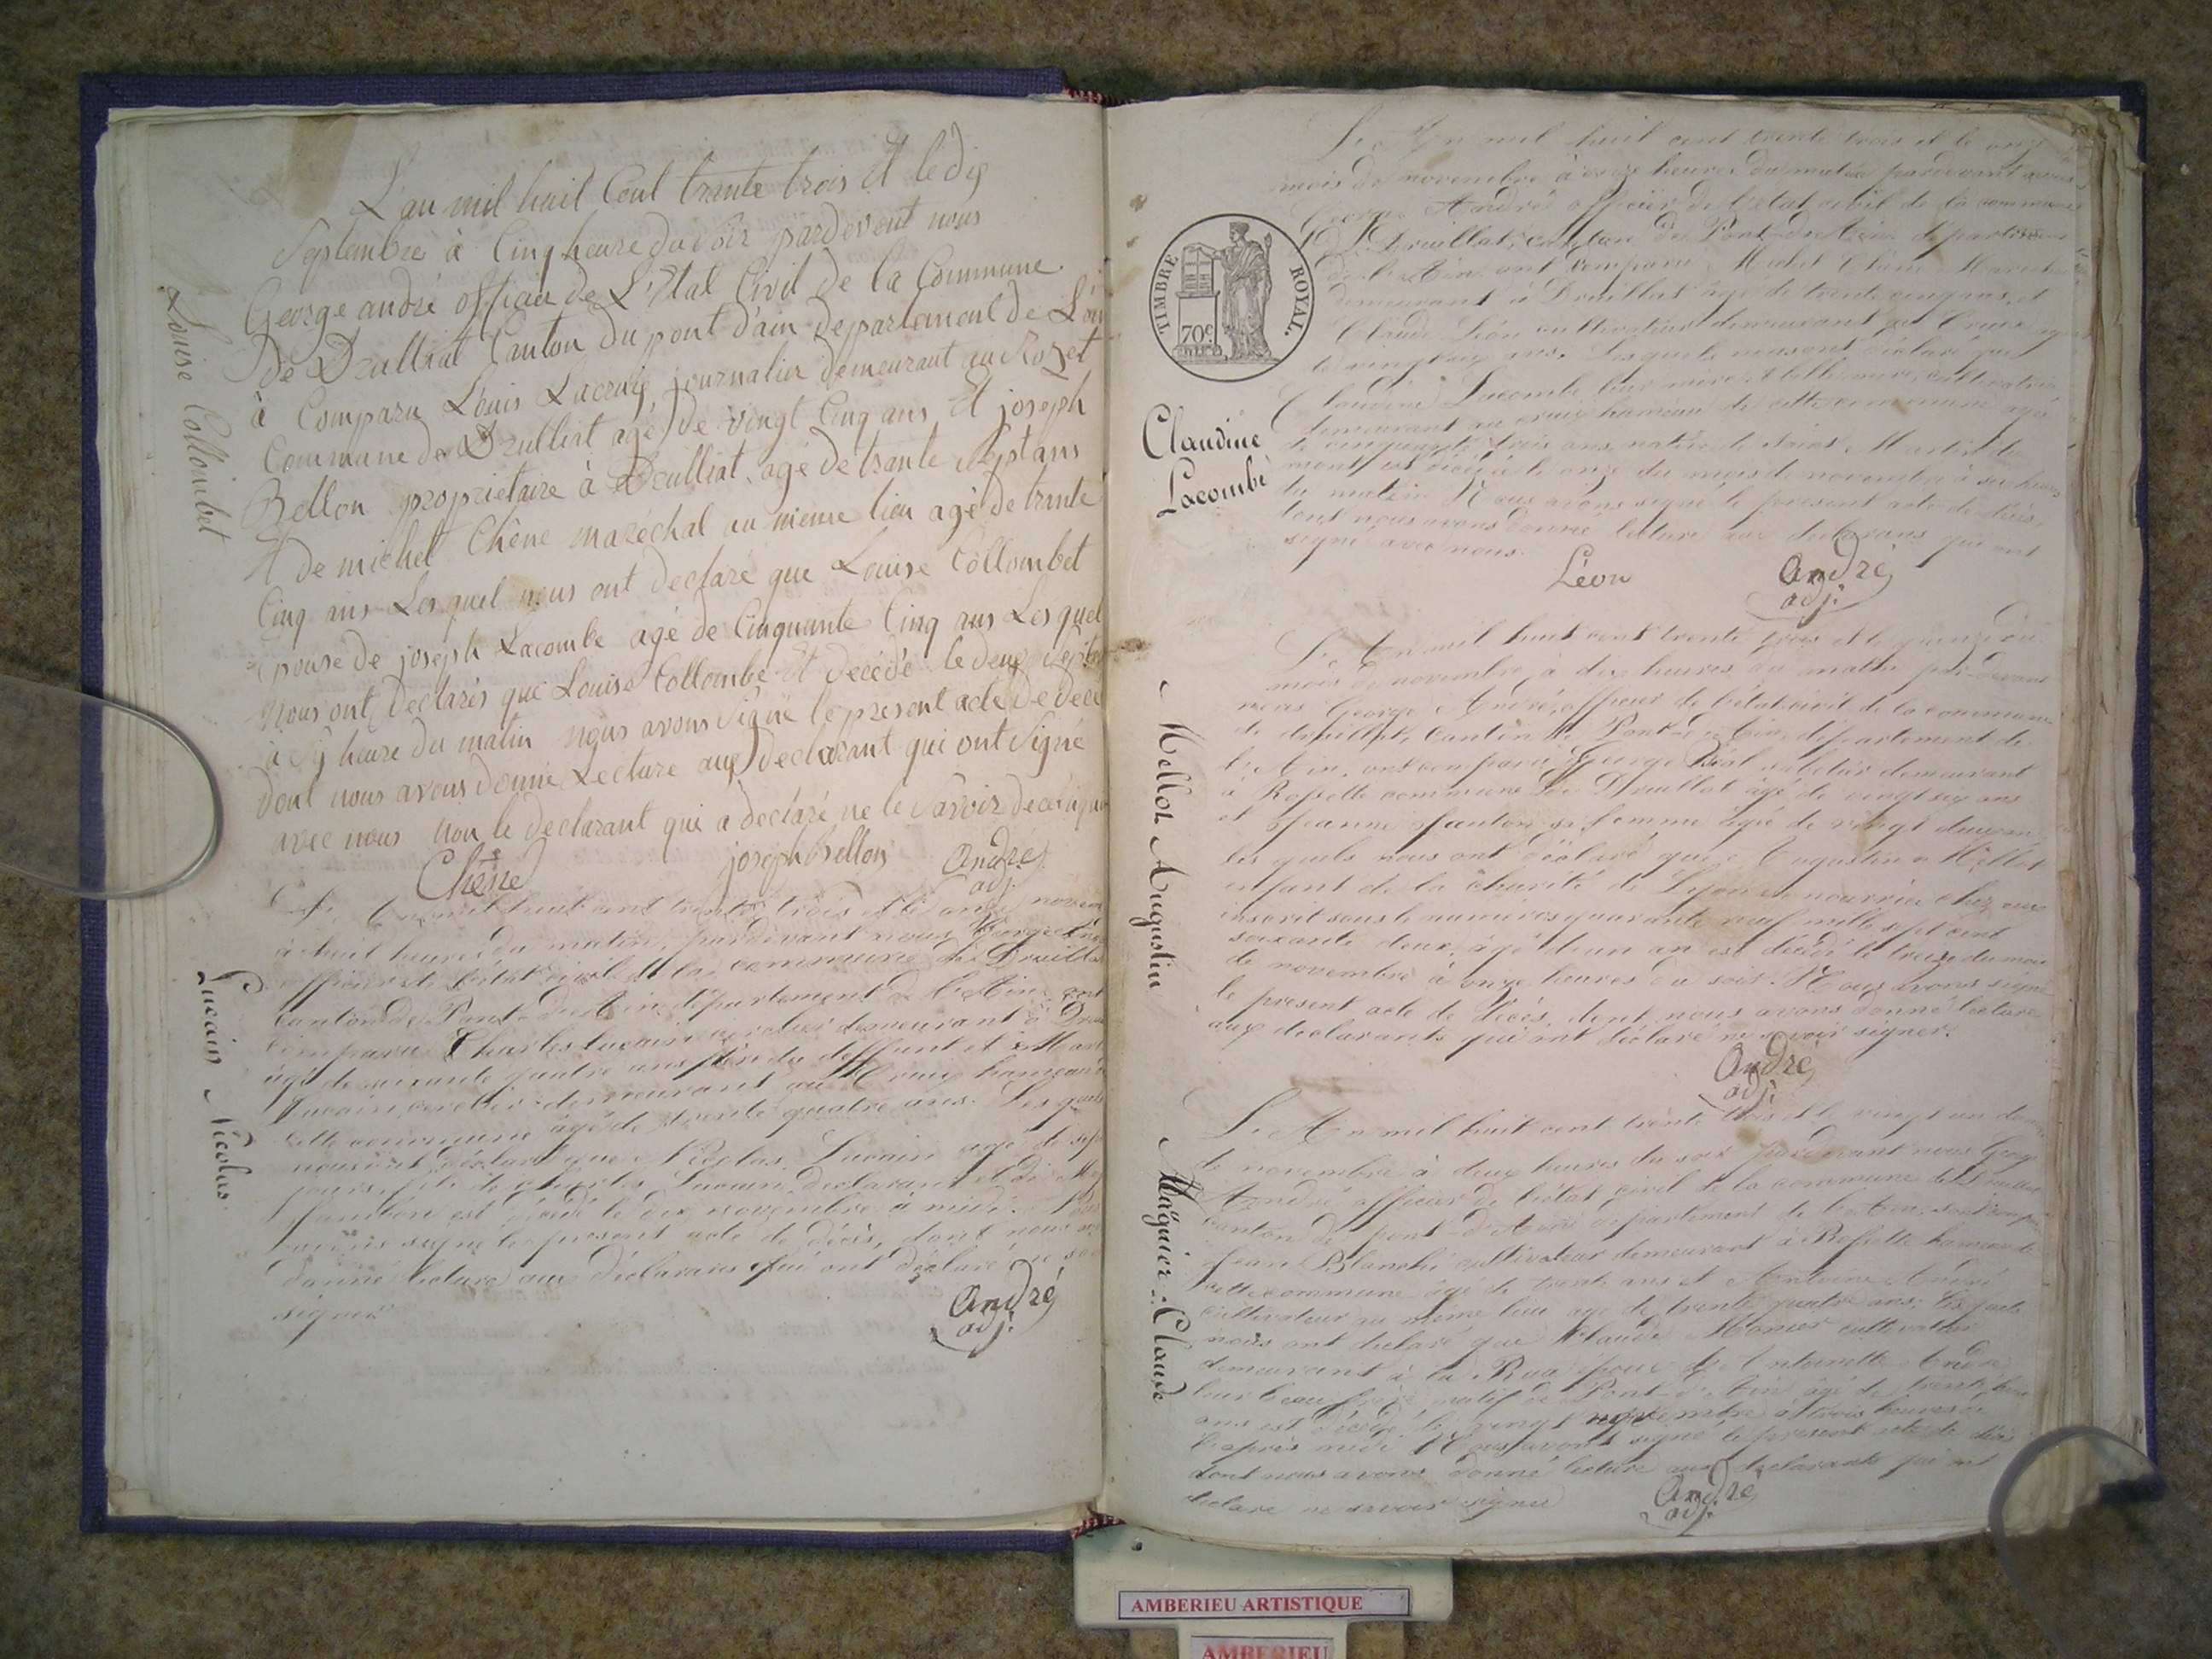 L'an mil huit Cent trante trois Et le dix
Septembre à Cinq heure du soir pardevent nous
George andré officier de L'Etat Civil de la Commune
de Drulliat Canton du pont d'ain departement de L'ain
à Comparu Louis Lacroix journalier demeurant au Rozet
Commune de Drulliat agé de vingt Cinq ans Et joseph
Bellon propriétaire à Drulliat agé de trante Sept ans
Et de michel Chêne maréchal au meme lieu agé de trante
Cinq ans Lesquel nous ont declaré que Louise Collombet
epouse de joseph Lacombe agé de Cinquante Cinq ans Lesquel
Nous ont declarés que Louise Collombe Et décédé le deux
à heure du matin nous avons Signé le present acte de
dont nous avons donné Lecture aux declarant qui ont Signé
avec nous non le declarant qui a déclaré ne le savoir de
Chêne joseph bellon André
adj.
Louise Collombet
L'An mil huit cent trente trois et le onze
à huit heures du matin, pardevant nous
officier de l'état civil de la commune de
canton de Pont-d'Ain département de l'Ain ont
comparu Charles Lucain demeurant à
agé de soixante quatre ans père du deffunt et
Lucain, demeurant au Cruix hameau
cette commune âgé de trente quatre ans. Lesquels
nous ont déclaré que Nicolas Lucain agé de
jours, fils de Charles Lucain déclarant et de
est décédé le dix novembre à midi.
avons signé le present acte de décès, dont nous
donné lecture aux déclarans qui ont déclaré ne
signer
André
adj.
Lucain Nicolas.
L'An mil huit cent trente trois et le onze
mois de novembre à onze heures du matin pardevant nous
George André officier de l'état civil de la commune
de Druillat, canton de Pont-d'Ain département
de l'Ain ont comparu Michel Chêne
demeurant à Druillat âgé de trente cinq ans, et
Claude Léon cultivateur demeurant au Cruix
de vingt ans, lesquels nous ont déclaré que
Claudine Lacombe leur mère et belle mère, cultivatrice
demeurant au cruix hameau de cette commune agé
de cinquante trois ans native de Saint Martin du
mont est décédée le onze du mois de novembre à
du matin Nous avons signé le present acte de décès
dont nous avons donné lecture aux déclarans qui ont
signé avec nous.
Léon André
adj.
TIMBRE ROYAL.
70c
Claudine
Lacombe
L'An mil huit cent trente trois et le quinze du
mois de novembre à dix heures du matin par-devant
nous George André, officier de l'état civil de la commune
de druillat, Canton de Pont-d'Ain, département de
l'Ain, ont comparu George demeurant
à Rossette commune de Druillat âgé de vingt six ans
et Jeanne sa femme âgée de vingt
lesquels nous ont déclaré que Augustin Mellot
enfant de la charité de Lyon en nourrice chez eux
inscrit sous le numéro quarante neuf mille sept cent
soixante deux, âgé d'un an est décédé le treize du mois
de novembre à onze heures du soir. Nous avons signé
le present acte de décès, dont nous avons donné lecture
aux déclarants qui ont déclaré ne savoir signer.
André
adj.
Mellot Augustin
L'An mil huit cent trente trois et le vingt un
de novembre à deux heures du soir pardevant nous
André officier de l'état civil de la commune
canton de pont-d'Ain département de l'Ain, sont
Jean Blanche cultivateur demeurant à Rossette hameau de
cette commune âgé de trente ans et Antoine André
cultivateur au même lieu âgé de trente quatre ans; lesquels
nous ont déclaré que Claude cultivateur
demeurant à la Rua époux de Antoinette André
leur beau frère natif de Pont-d'Ain âgé de trente
ans est décédé le vingt novembre à trois heures de
l'après midi Nous avons signé le present acte de décès
dont nous avons donné lecture aux déclarants qui ont
déclaré ne savoir signer
André
adj.
Maguier: Claude
AMBERIEU ARTISTIQUE
AMBERIEU